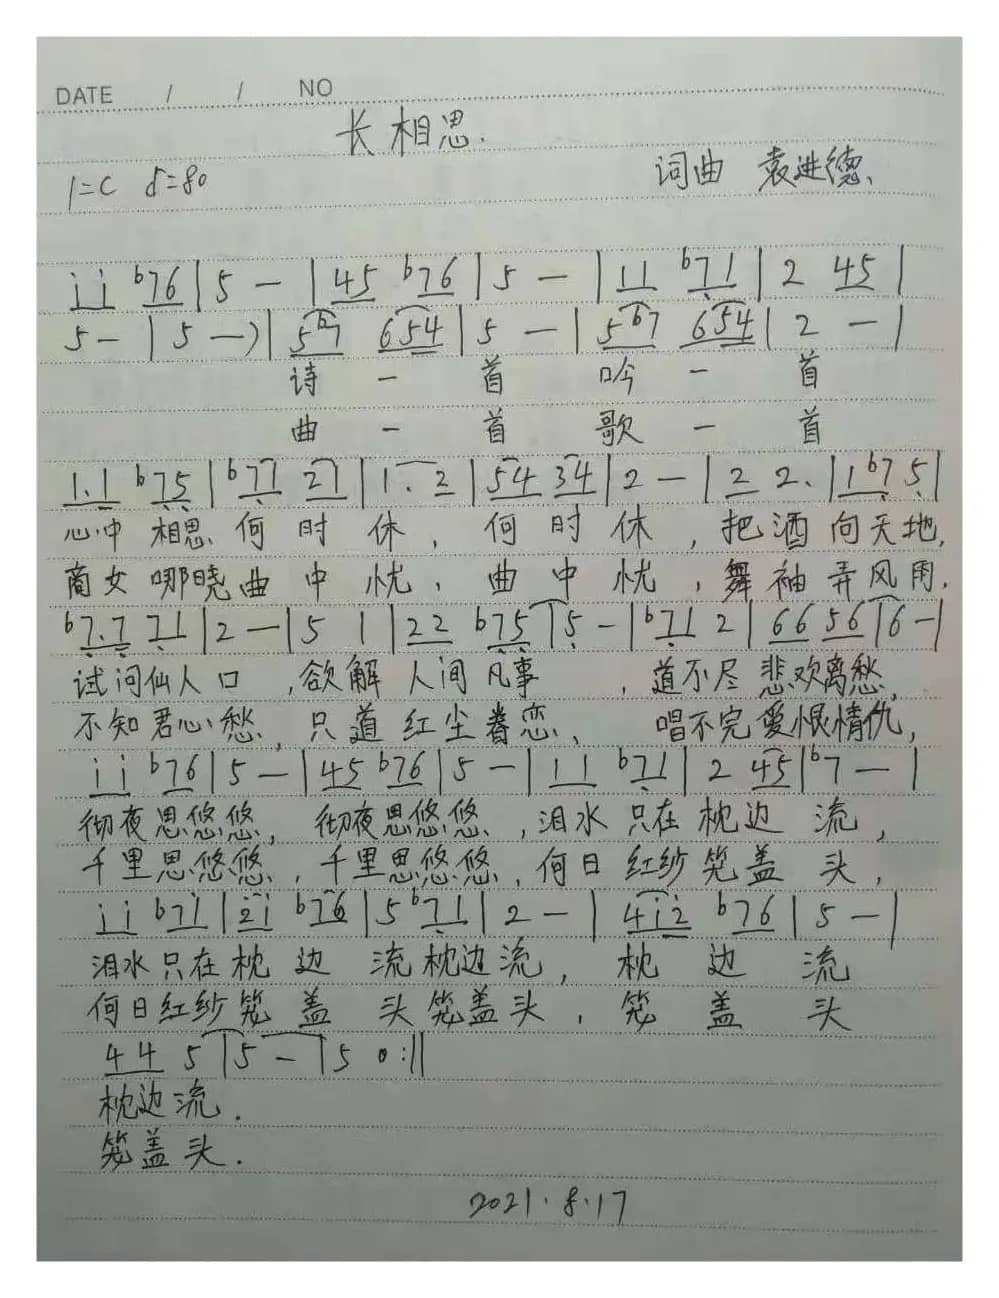 DATE / / NO
长相思.
1=C ♩=80 词曲 袁进德
i i b7 6 | 5 — | 4 5 b7 6 | 5 — | 1 1 b7 1 | 2 4 5 |
5 - | 5 —) | 5 b7 6 5 4 | 5 — | 5 b7 6 5 4 | 2 — |
诗 一 首 吟 一 首
曲 一 首 歌 一 首
1. 1 b7 5 | b7 7 2 1 | 1 . 2 | 5 4 3 4 | 2 — | 2 2. | 1 b7 5 |
心中 相思 何 时 休, 何 时 休, 把 酒 向 天 地,
商女 哪晓 曲 中 忧, 曲 中 忧, 舞 袖 弄 风 雨.
b7. 7 7 1 | 2 — | 5 1 | 2 2 b7 5 | 5 — | b7 1 2 | 6 6 5 6 | 6 — |
试问仙人口, 欲解 人间 凡事, 道不尽 悲欢离愁,
不知君心愁, 只道 红尘 眷恋, 唱不完 爱恨情仇,
i i b7 6 | 5 — | 4 5 b7 6 | 5 — | 1 1 b7 1 | 2 4 5 | b7 — |
彻夜思悠悠, 彻夜思悠悠, 泪水 只在 枕边 流,
千里思悠悠, 千里思悠悠, 何日 红纱 笼盖 头,
i i b7 i | 2 i b7 6 | 5 b7 1 | 2 — | 4 i 2 b7 6 | 5 — |
泪水只在枕 边 流枕边流, 枕 边 流
何日红纱笼 盖 头笼盖头, 笼 盖 头
4 4 5 | 5 — | 5 0 :||
枕边流.
笼盖头.
2021.8.17